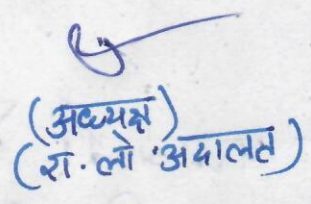 (अध्यक्ष)
(रा. लो. अदालत)